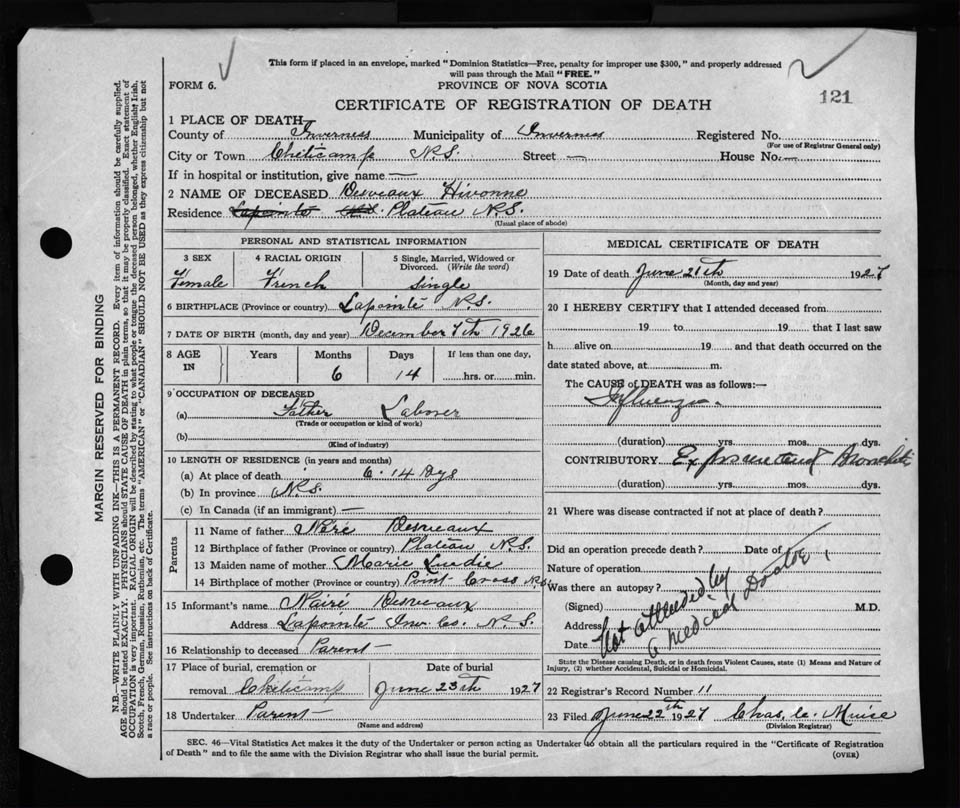 This form if placed in an envelope, marked "Dominion Statistics—Free, penalty for improper use $300," and properly addressed
will pass through the Mail "FREE."
FORM 6.
PROVINCE OF NOVA SCOTIA
121
CERTIFICATE OF REGISTRATION OF DEATH
1 PLACE OF DEATH
County of Inverness Municipality of Inverness Registered No.
(For use of Registrar General only)
City or Town Cheticamp N.S. Street — House No. —
If in hospital or institution, give name —
2 NAME OF DECEASED Desveaux Hivonne
Residence Lapointe N.S. Plateau N.S.
(Usual place of abode)
PERSONAL AND STATISTICAL INFORMATION
3 SEX 4 RACIAL ORIGIN 5 Single, Married, Widowed or
Divorced. (Write the word)
Female French Single
6 BIRTHPLACE (Province or country) Lapointe N.S.
7 DATE OF BIRTH (month, day and year) December 7th 1926
8 AGE IN Years Months Days If less than one day,
6 14 hrs. or min.
9 OCCUPATION OF DECEASED
(a) Father Laborer
(Trade or occupation or kind of work)
(b)
(Kind of industry)
10 LENGTH OF RESIDENCE (in years and months)
(a) At place of death 6 : 14 Dys
(b) In province N.S.
(c) In Canada (if an immigrant) —
Parents
11 Name of father Naré Desveaux
12 Birthplace of father (Province or country) Plateau N.S.
13 Maiden name of mother Marie Lurdie
14 Birthplace of mother (Province or country) Point Cross N.S.
15 Informant's name Nairé Desveaux
Address Lapointe Inv. Co. N.S.
16 Relationship to deceased Parent
17 Place of burial, cremation or Date of burial
removal Cheticamp June 23th 1927
18 Undertaker Parent
(Name and address)
MEDICAL CERTIFICATE OF DEATH
19 Date of death June 21th 1927
(Month, day and year)
20 I HEREBY CERTIFY that I attended deceased from
19 to 19 that I last saw
h alive on 19 and that death occurred on the
date stated above, at m.
The CAUSE of DEATH was as follows:—
Influenza
(duration) yrs. mos. dys.
CONTRIBUTORY Exposure and Bronchitis
(duration) yrs. mos. dys.
21 Where was disease contracted if not at place of death?
Did an operation precede death? Date of
Nature of operation
Was there an autopsy?
(Signed) M.D.
Address
Date
Not attended by
a medical Doctor
State the Disease causing Death, or in death from Violent Causes, state (1) Means and Nature of
Injury, (2) whether Accidental, Suicidal or Homicidal.
22 Registrar's Record Number 11
23 Filed June 22th 1927 Chas. Le. Muise
(Division Registrar)
SEC. 46—Vital Statistics Act makes it the duty of the Undertaker or person acting as Undertaker to obtain all the particulars required in the "Certificate of Registration
of Death" and to file the same with the Division Registrar who shall issue the burial permit.
(OVER)
MARGIN RESERVED FOR BINDING
N.B.—WRITE PLAINLY WITH UNFADING INK—THIS IS A PERMANENT RECORD. Every item of information should be carefully supplied.
AGE should be stated EXACTLY. PHYSICIANS should STATE CAUSE OF DEATH in plain terms, so that it may be properly classified. Exact statement of
OCCUPATION is very important. RACIAL ORIGIN will be described by stating to what people or tongue the deceased person belonged, whether English, Irish,
Scotch, French, German, Russian, Ruthenian, etc. The terms "AMERICAN" or "CANADIAN" SHOULD NOT BE USED as they express citizenship but not
a race or people. See instructions on back of Certificate.